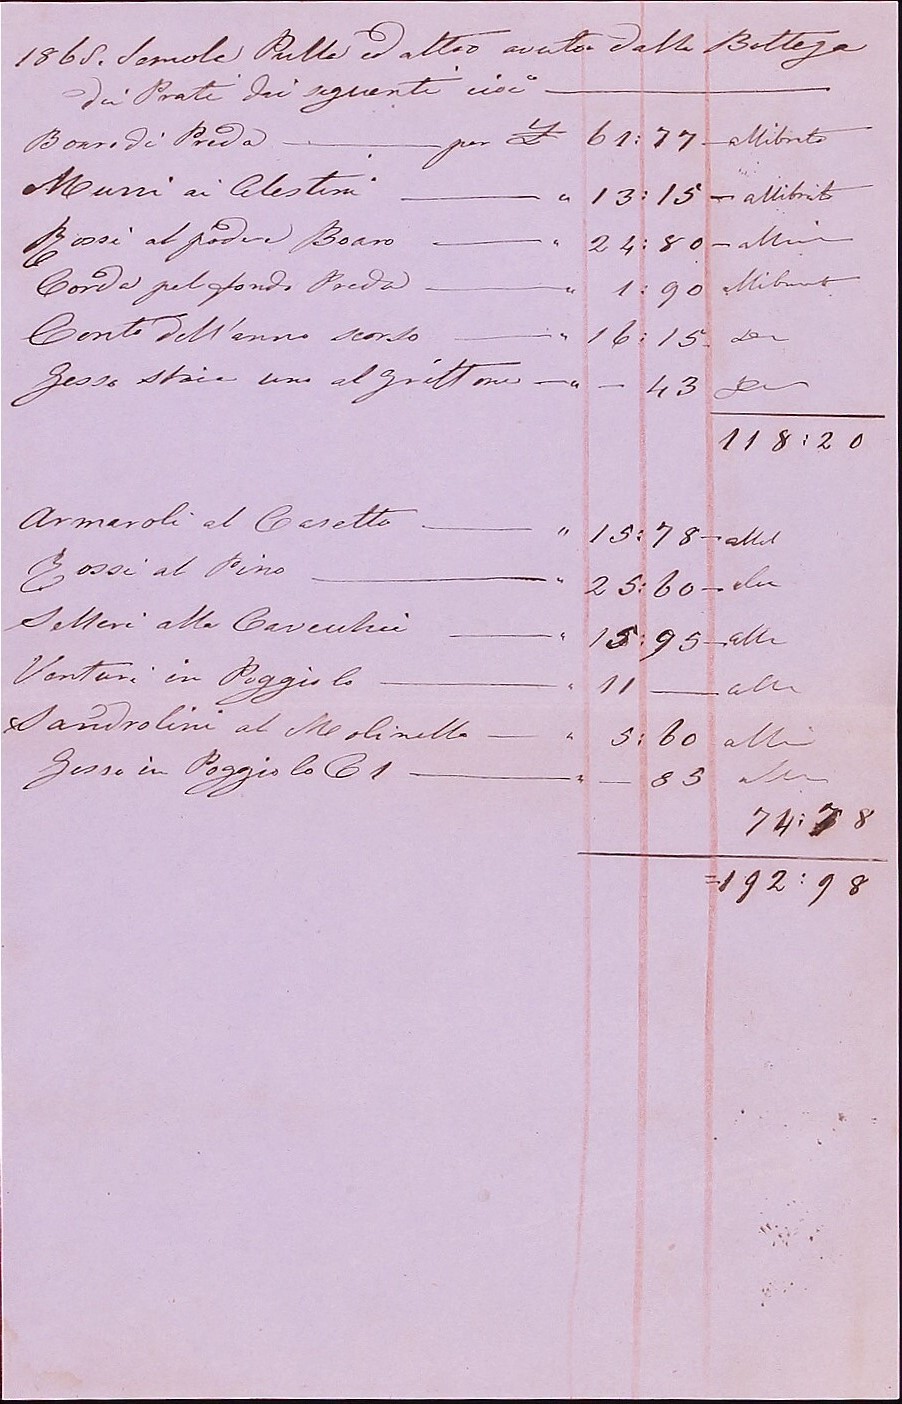 1865. Semole Pulla ed altro avuto dalla Bottega
dei Prati dai seguenti cioè
Boaro di Preda per £ 61:77 allibrato
Murri ai Celestini " 13:15 allibrato
Rossi al podere Boaro " 24:80
Corda pel fondo Preda " 1:90
Conto dell'anno scorso " 16:15
Gesso staia uno al Grittone " — 43
118:20
Armaroli al Casetto " 15:78
Rossi al Pino " 25:60
Selleri alla " 15:95
Venturi in Poggiolo " 11
Sandrolini al Molinello " 5:60
Gesso in Poggiolo C 1 " — 85
74:78
=192:98